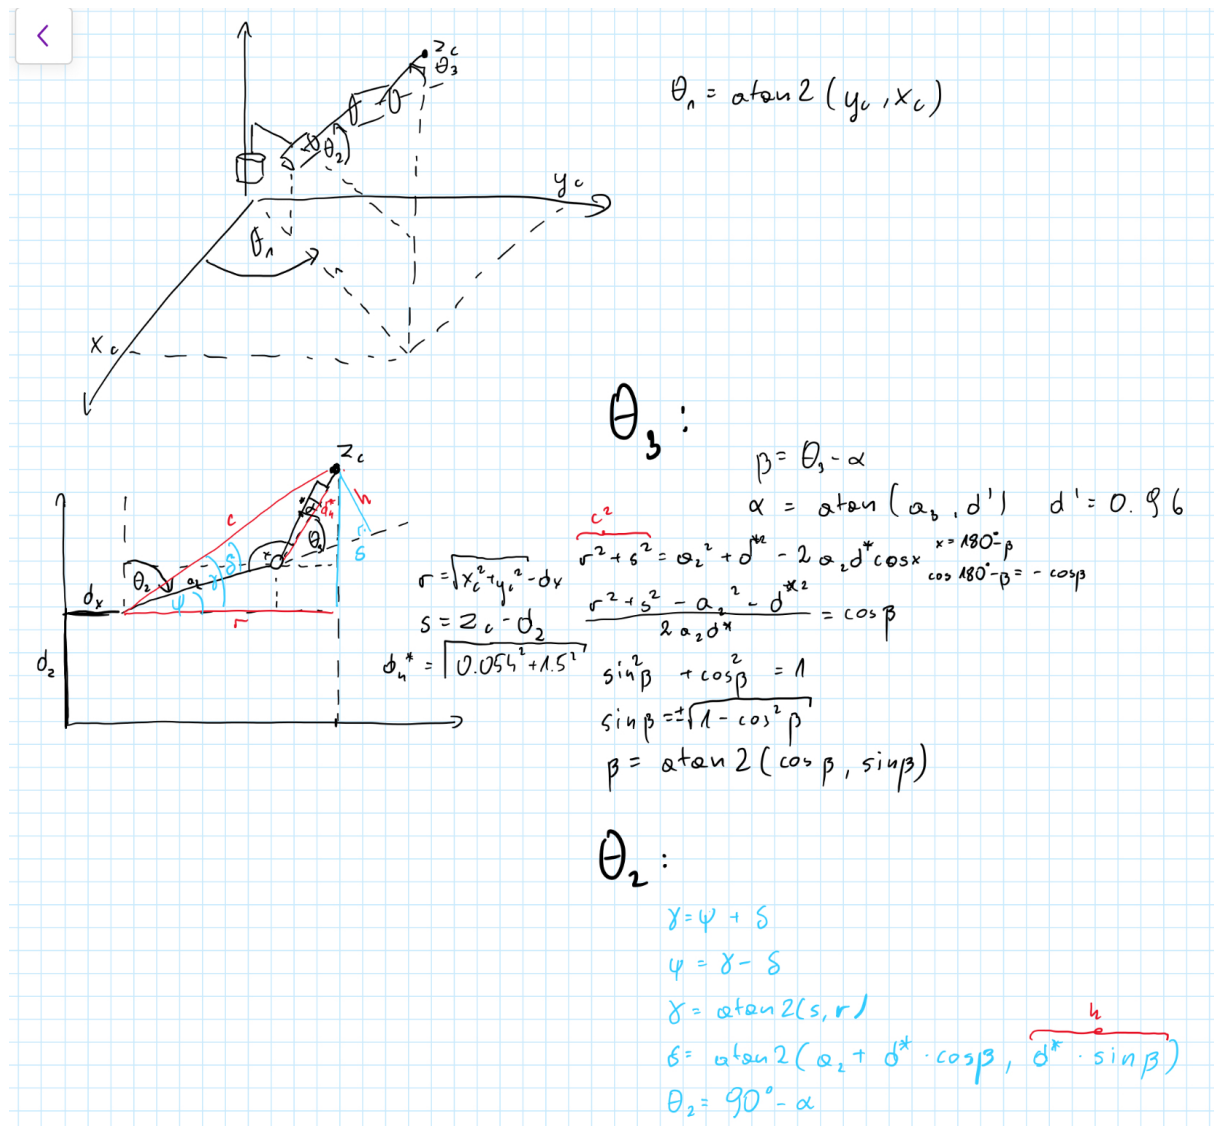 z_c
θ_3
θ_1 = atan2 (y_c, x_c)
θ_2
y_c
θ_1
x_c
θ_3 :
β = θ_3 - α
α = atan (a_3, d') d' = 0.96
z_c
c
h
d_4^*
α
θ_3
x
δ
γ
s
θ_2
a_2
ψ
d_x
r
d_2
r = √(x_c² + y_c²) - d_x
s = z_c - d_2
d_4^* = √(0.054² + 1.5²)
c²
r² + s² = a_2² + d^*² - 2 a_2 d^* cos x x = 180° - β
cos 180° - β = - cos β
(r² + s² - a_2² - d^*²) / (2 a_2 d^*) = cos β
sin²β + cos²β = 1
sin β = ± √(1 - cos² β)
β = atan2 (cos β, sin β)
θ_2 :
γ = ψ + δ
ψ = γ - δ
γ = atan2 (s, r)
h
δ = atan2 (a_2 + d^* · cos β, d^* · sin β)
θ_2 = 90° - α